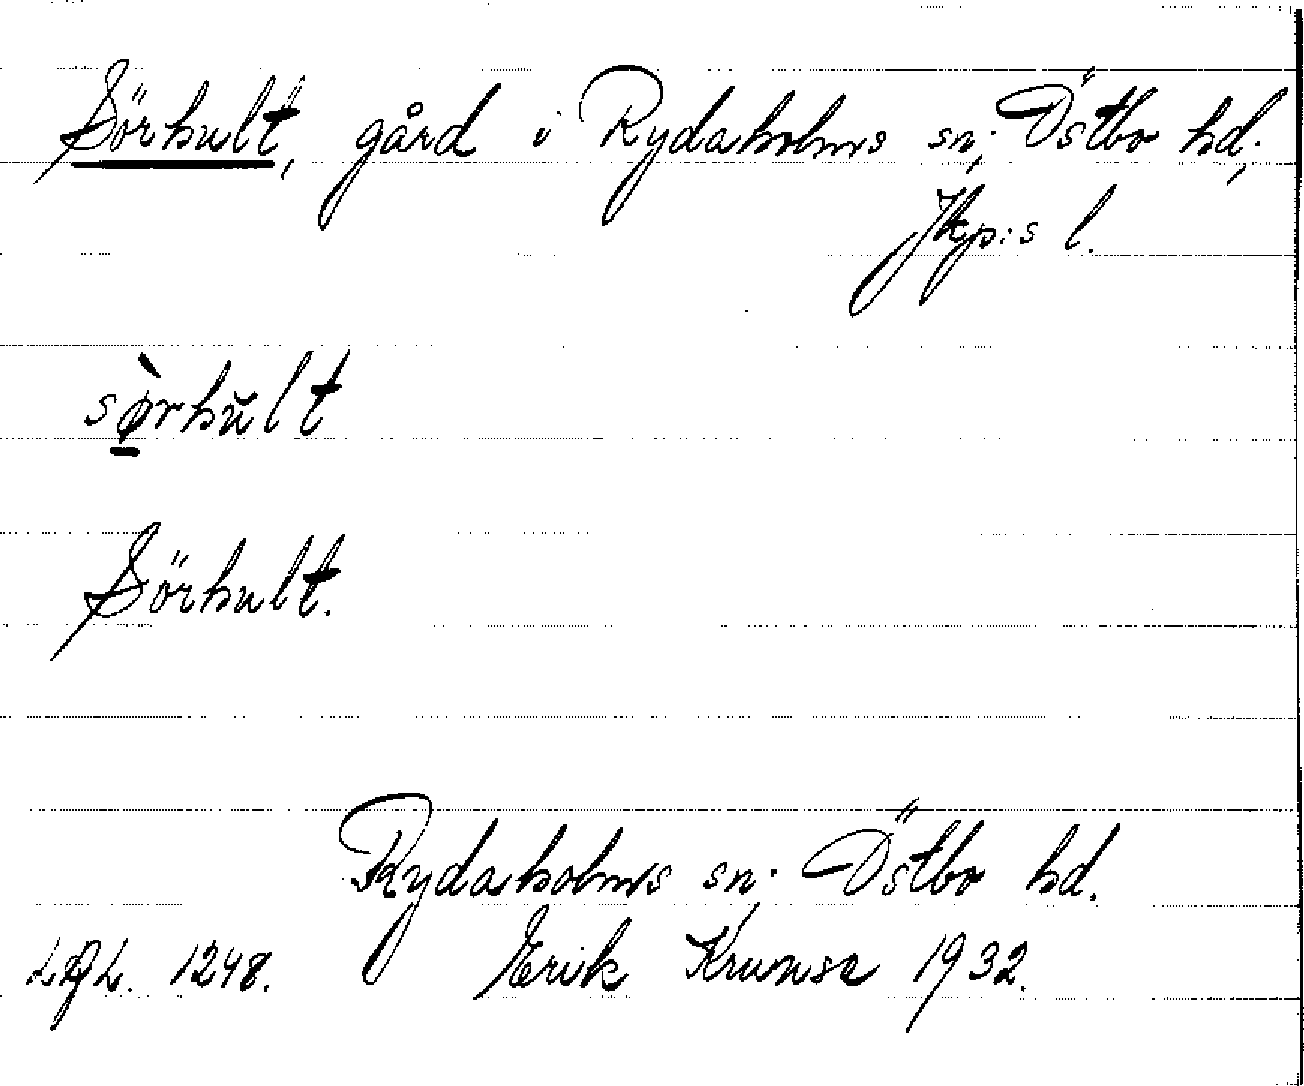 Sörhult, gård i Rydaholms sn; Östbo hd;
Jkp:s l.
sø̀rhŭlt
Sörhult.
Rydaholms sn. Östbo hd.
1248. Erik Krunse 1932.